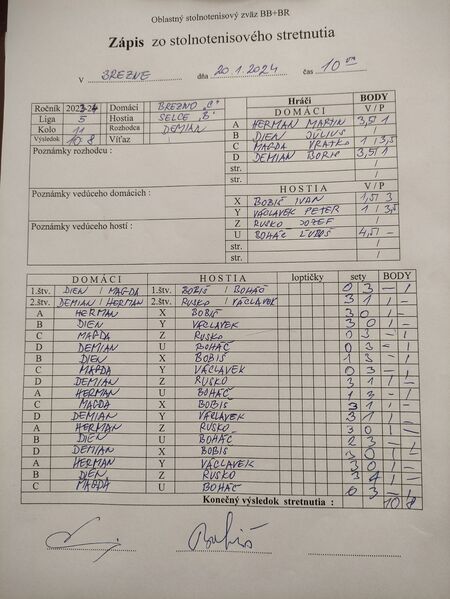 Oblastný stolnotenisový zväz BB+BR
Zápis zo stolnotenisového stretnutia
V BREZNE dňa 20.1.2024 čas 10
Ročník 2023-24 Domáci BREZNO "C"
Liga 5 Hostia SELCE "B"
Kolo 11 Rozhodca DEMIAN
Výsledok 10:8 Víťaz
Poznámky rozhodcu :
Poznámky vedúceho domácich :
Poznámky vedúceho hostí :
Hráči BODY
DOMÁCI V / P
A HERMAN MARTIN 3,5/1
B DIEN JÚLIUS /
C MAGDA VRATKO 1 / 3,5
D DEMIAN BORIS 3,5/1
str. /
str. /
HOSTIA V / P
X BOBIŠ IVAN 1,5/ 3
Y VÁCLAVEK PETER 1 / 3,5
Z RUSKO JOZEF /
U BOHÁČ ĽUBOŠ 4,5/ -
str. /
str. /
DOMÁCI HOSTIA loptičky sety BODY
1.štv. DIEN / MAGDA 1.štv. BOBIŠ / BOHÁČ 0 3 - 1
2.štv. DEMIAN / HERMAN 2.štv. RUSKO / VÁCLAVEK 3 1 1 -
A HERMAN X BOBIŠ 3 0 1 -
B DIEN Y VÁCLAVEK 3 0 1 -
C MAGDA Z RUSKO 0 3 - 1
D DEMIAN U BOHÁČ 0 3 - 1
B DIEN X BOBIŠ 1 3 - 1
C MAGDA Y VÁCLAVEK 0 3 - 1
D DEMIAN Z RUSKO 3 1 1 -
A HERMAN U BOHÁČ 1 3 - 1
C MAGDA X BOBIŠ 3 1 1 -
D DEMIAN Y VÁCLAVEK 3 1 1 -
A HERMAN Z RUSKO 3 0 1 -
B DIEN U BOHÁČ 2 3 - 1
D DEMIAN X BOBIŠ 3 0 1 -
A HERMAN Y VÁCLAVEK 3 0 1 -
B DIEN Z RUSKO 3 1 -
C MAGDA U BOHÁČ 0 3 - 1
Konečný výsledok stretnutia : 10 8
Bobiš